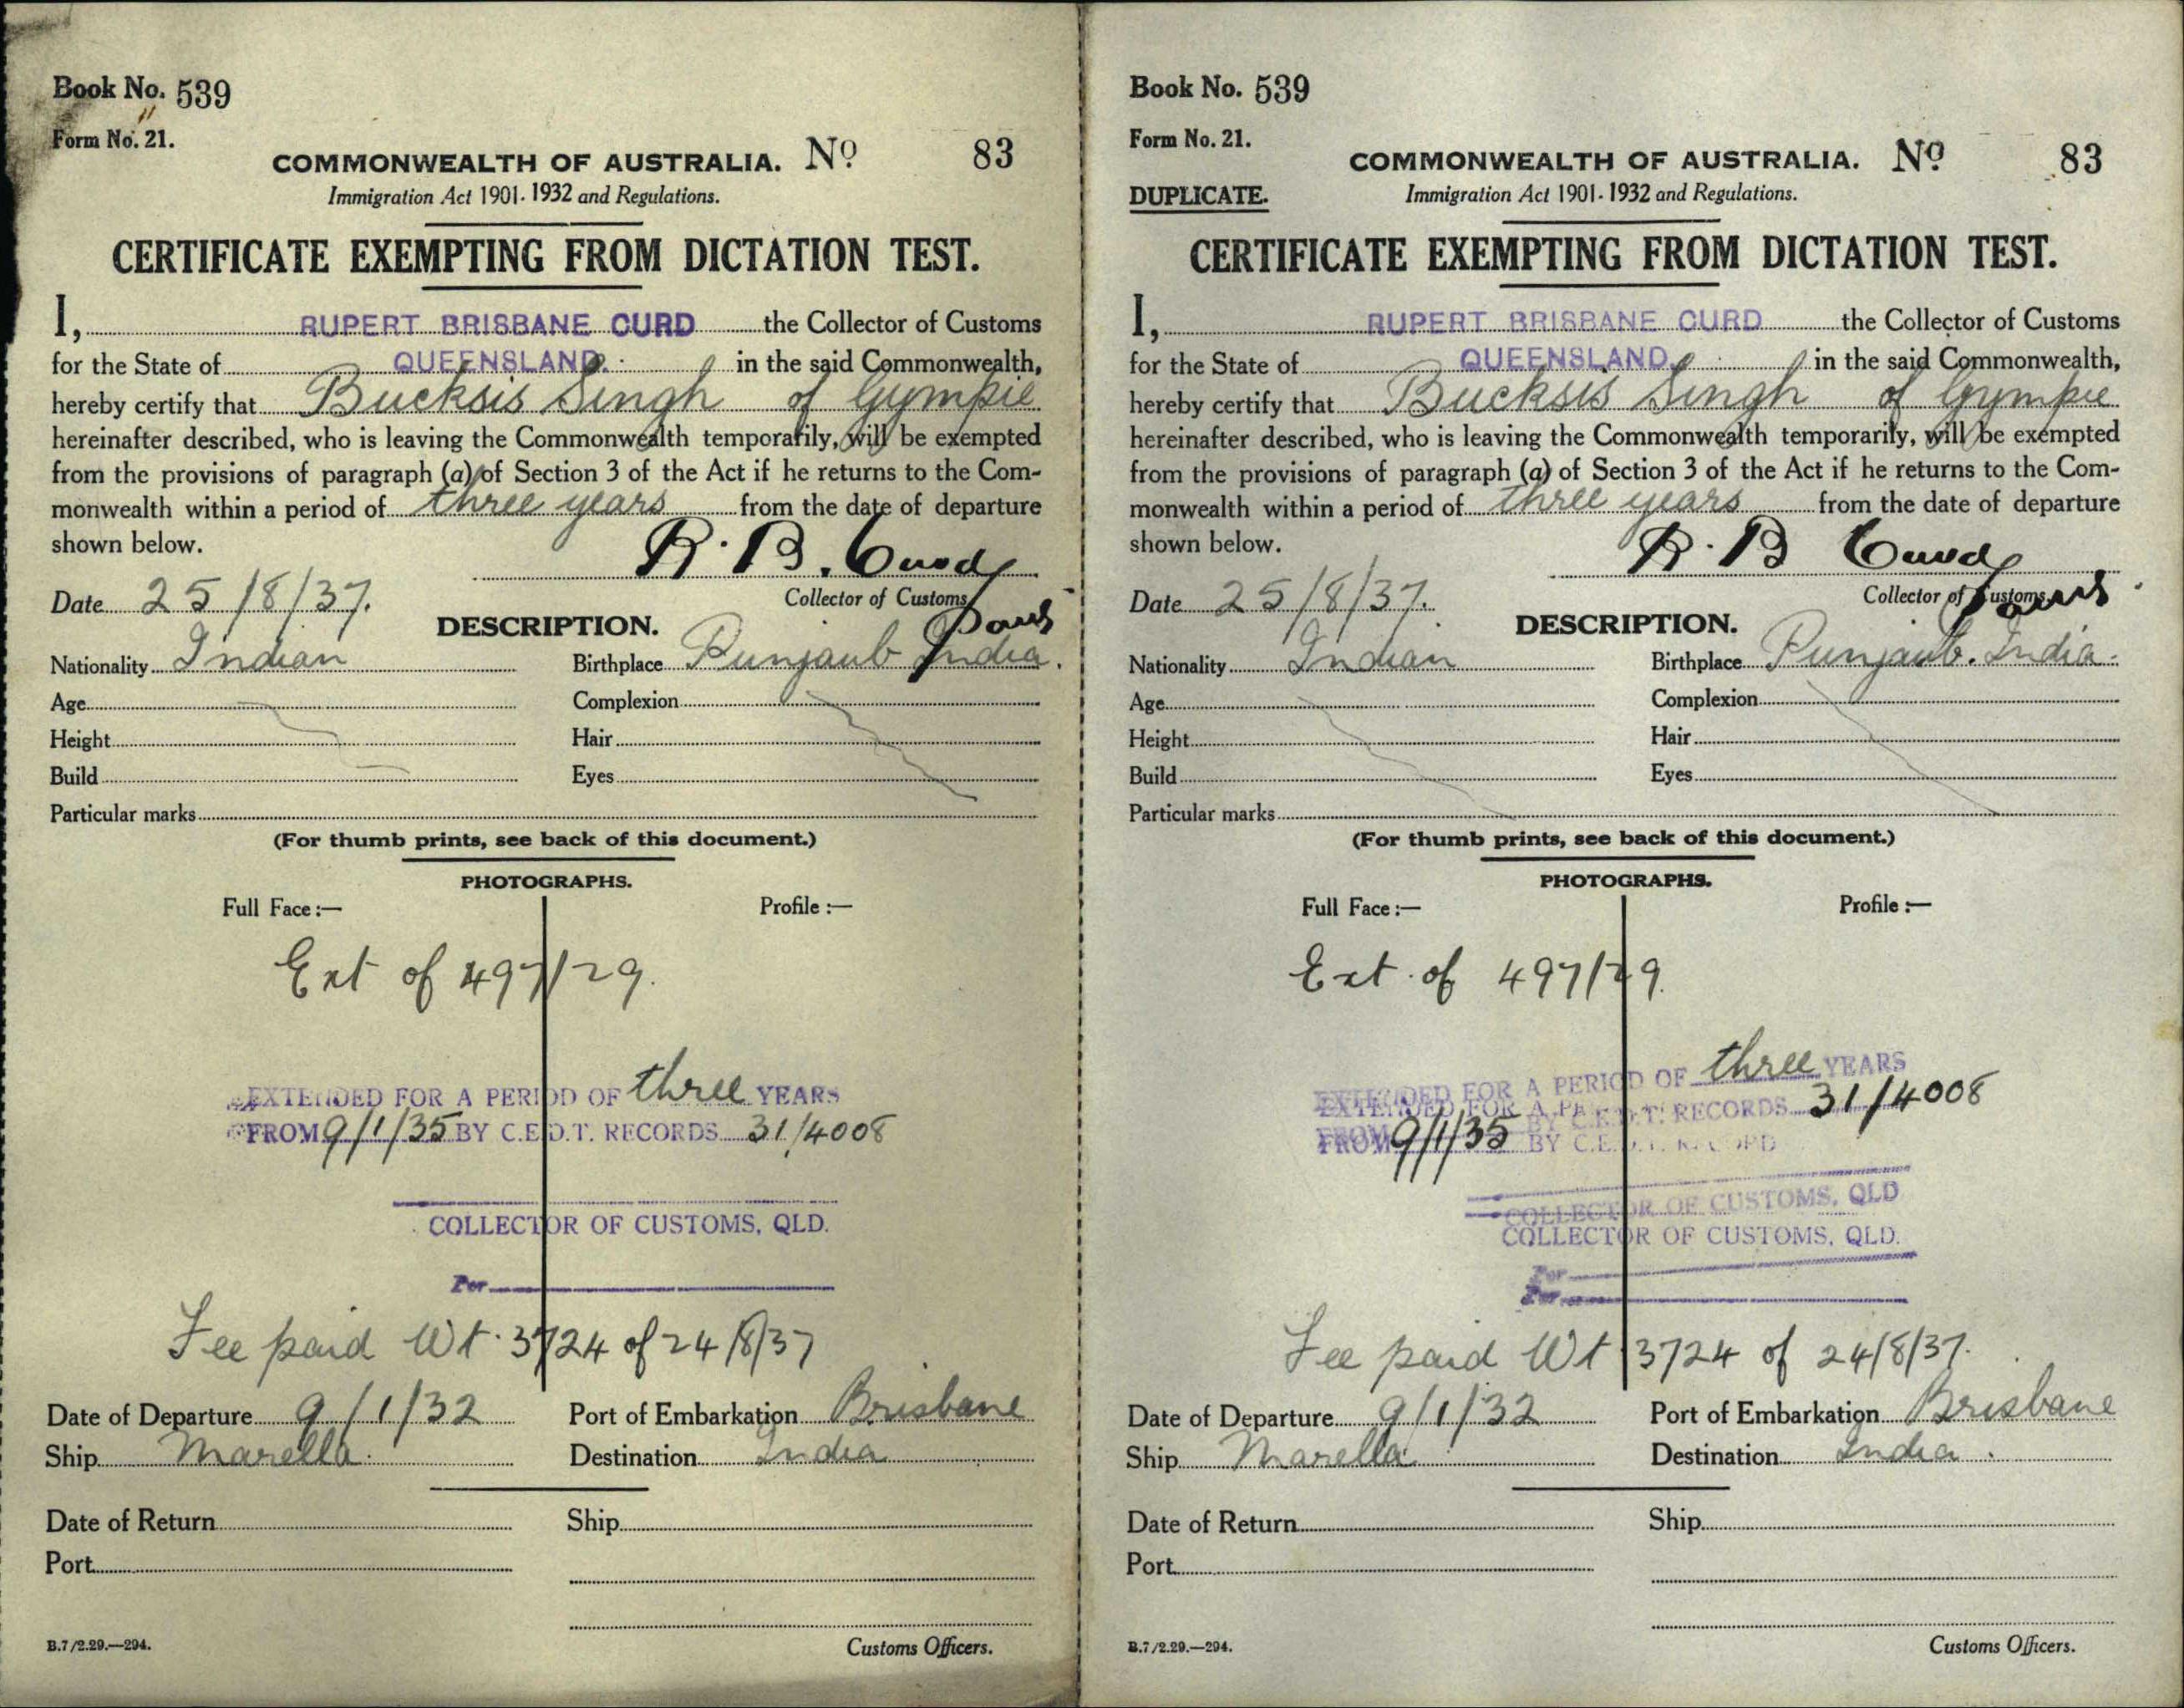 Book No. 539
Form No. 21.
COMMONWEALTH OF AUSTRALIA. No 83
Immigration Act 1901-1932 and Regulations.
CERTIFICATE EXEMPTING FROM DICTATION TEST.
I, RUPERT BRISBANE CURD the Collector of Customs
for the State of QUEENSLAND. in the said Commonwealth,
hereby certify that Bucksis Singh of Gympie
hereinafter described, who is leaving the Commonwealth temporarily, will be exempted
from the provisions of paragraph (a) of Section 3 of the Act if he returns to the Com-
monwealth within a period of three years from the date of departure
shown below.
R. B. Curd
Date 25/8/37. Collector of Customs
DESCRIPTION.
Nationality Indian Birthplace Punjaub India.
Age Complexion
Height Hair
Build Eyes
Particular marks
(For thumb prints, see back of this document.)
PHOTOGRAPHS.
Full Face :— Profile :—
Ext of 497/29.
EXTENDED FOR A PERIOD OF three YEARS
FROM 9/1/35 BY C.E.D.T. RECORDS 31/4008
COLLECTOR OF CUSTOMS, QLD.
Per
Fee paid Wt. 3724 of 24/8/37
Date of Departure 9/1/32 Port of Embarkation Brisbane
Ship Marella. Destination India
Date of Return Ship
Port
B.7/2.29.—294. Customs Officers.
Book No. 539
Form No. 21.
COMMONWEALTH OF AUSTRALIA. No 83
DUPLICATE. Immigration Act 1901-1932 and Regulations.
CERTIFICATE EXEMPTING FROM DICTATION TEST.
I, RUPERT BRISBANE CURD the Collector of Customs
for the State of QUEENSLAND. in the said Commonwealth,
hereby certify that Bucksis Singh of Gympie
hereinafter described, who is leaving the Commonwealth temporarily, will be exempted
from the provisions of paragraph (a) of Section 3 of the Act if he returns to the Com-
monwealth within a period of three years from the date of departure
shown below.
R. B Curd
Date 25/8/37. Collector of Customs
DESCRIPTION.
Nationality Indian Birthplace Punjaub. India.
Age Complexion
Height Hair
Build Eyes
Particular marks
(For thumb prints, see back of this document.)
PHOTOGRAPHS.
Full Face :— Profile :—
Ext. of 497/29.
EXTENDED FOR A PERIOD OF three YEARS
EXTENDED FOR A BY C.E.D.T. RECORDS 31/4008
FROM 9/1/35 BY C.E.D.T. RECORD
COLLECTOR OF CUSTOMS, QLD
COLLECTOR OF CUSTOMS, QLD.
Per
Per
Fee paid Wt 3724 of 24/8/37.
Date of Departure 9/1/32 Port of Embarkation Brisbane
Ship Marella. Destination India.
Date of Return Ship
Port
B.7/2.29.—294. Customs Officers.